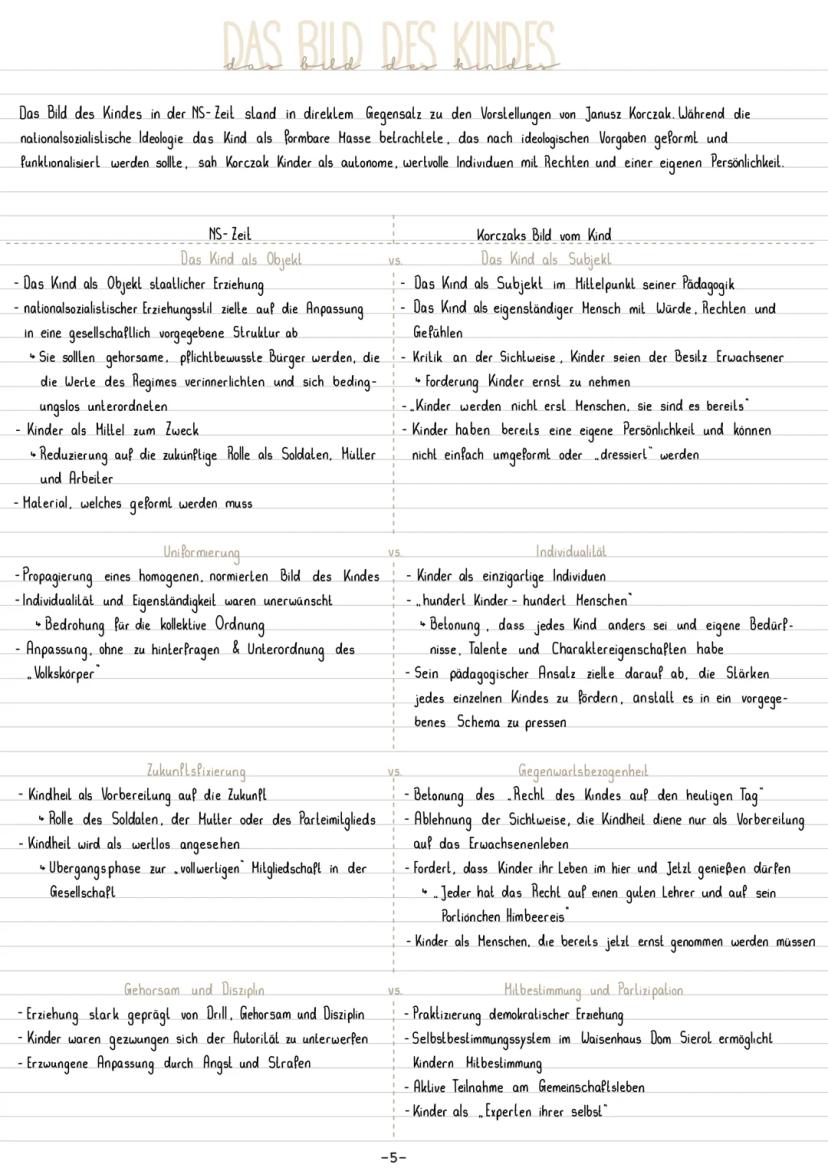 DAS BILD DES KINDES
das bild des kindes
Das Bild des Kindes in der NS-Zeit stand in direktem Gegensatz zu den Vorstellungen von Janusz Korczak. Während die
nationalsozialistische Ideologie das Kind als formbare Masse betrachtete, das nach ideologischen Vorgaben geformt und
funktionalisiert werden sollte, sah Korczak Kinder als autonome, wertvolle Individuen mit Rechten und einer eigenen Persönlichkeit.
NS-Zeit
Korczaks Bild vom Kind
Das Kind als Objekt
vs.
Das Kind als Subjekt
- Das Kind als Objekt staatlicher Erziehung
- nationalsozialistischer Erziehungsstil zielte auf die Anpassung
in eine gesellschaftlich vorgegebene Struktur ab
↳ Sie sollten gehorsame, pflichtbewusste Bürger werden, die
die Werte des Regimes verinnerlichten und sich beding-
ungslos unterordneten
- Kinder als Mittel zum Zweck
↳ Reduzierung auf die zukünftige Rolle als Soldaten, Mütter
und Arbeiter
- Material, welches geformt werden muss
- Das Kind als Subjekt im Mittelpunkt seiner Pädagogik
- Das Kind als eigenständiger Mensch mit Würde, Rechten und
Gefühlen
- Kritik an der Sichtweise, Kinder seien der Besitz Erwachsener
↳ Forderung Kinder ernst zu nehmen
- „Kinder werden nicht erst Menschen, sie sind es bereits"
- Kinder haben bereits eine eigene Persönlichkeit und können
nicht einfach umgeformt oder „dressiert" werden
Uniformierung
vs.
Individualität
- Propagierung eines homogenen, normierten Bild des Kindes
- Individualität und Eigenständigkeit waren unerwünscht
↳ Bedrohung für die kollektive Ordnung
- Anpassung, ohne zu hinterfragen & Unterordnung des
„Volkskörper"
- Kinder als einzigartige Individuen
- „hundert Kinder - hundert Menschen"
↳ Betonung, dass jedes Kind anders sei und eigene Bedürf-
nisse, Talente und Charaktereigenschaften habe
- Sein pädagogischer Ansatz zielte darauf ab, die Stärken
jedes einzelnen Kindes zu fördern, anstatt es in ein vorgege-
benes Schema zu pressen
Zukunftsfixierung
vs.
Gegenwartsbezogenheit
- Kindheit als Vorbereitung auf die Zukunft
↳ Rolle des Soldaten, der Mutter oder des Parteimitglieds
- Kindheit wird als wertlos angesehen
↳ Übergangsphase zur „vollwertigen" Mitgliedschaft in der
Gesellschaft
- Betonung des „Recht des Kindes auf den heutigen Tag"
- Ablehnung der Sichtweise, die Kindheit diene nur als Vorbereitung
auf das Erwachsenenleben
- Fordert, dass Kinder ihr Leben im hier und Jetzt genießen dürfen
↳ „Jeder hat das Recht auf einen guten Lehrer und auf sein
Portiönchen Himbeereis"
- Kinder als Menschen, die bereits jetzt ernst genommen werden müssen
Gehorsam und Disziplin
vs.
Mitbestimmung und Partizipation
- Erziehung stark geprägt von Drill, Gehorsam und Disziplin
- Kinder waren gezwungen sich der Autorität zu unterwerfen
- Erzwungene Anpassung durch Angst und Strafen
- Praktizierung demokratischer Erziehung
- Selbstbestimmungssystem im Waisenhaus Dom Sierot ermöglicht
Kindern Mitbestimmung
- Aktive Teilnahme am Gemeinschaftsleben
- Kinder als „Experten ihrer selbst"
-5-